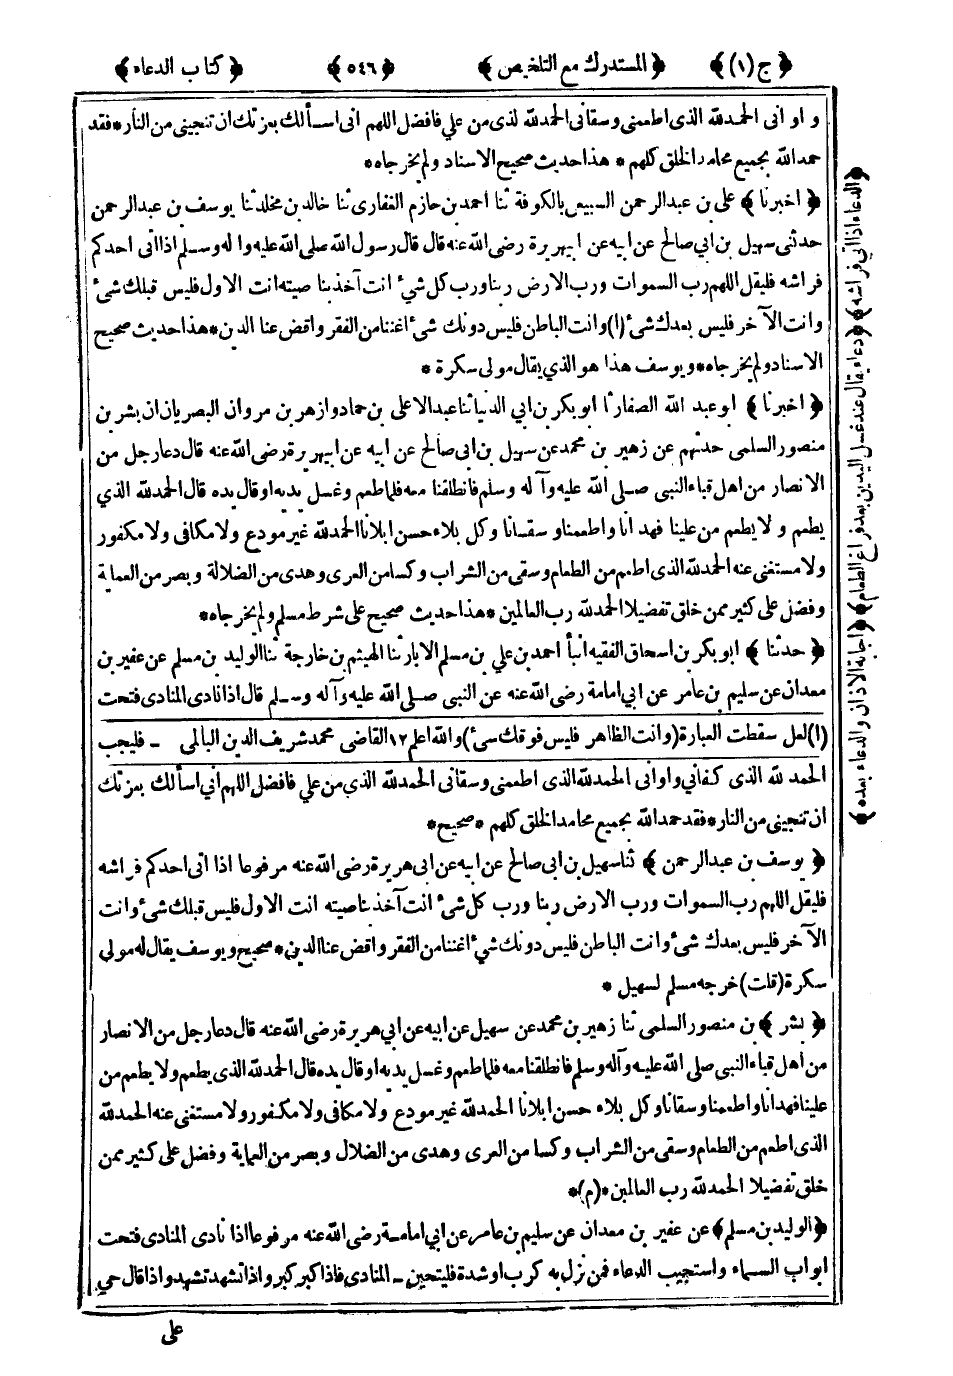 ﴿ ج (١) ﴾ ﴿ المستدرك مع التلخيص ﴾ ﴿ ٥٤٦ ﴾ ﴿ كتاب الدعاء ﴾
و او انى الحمدلله الذى اطعمنى وسقانى الحمدلله لذى من علي فافضل اللهم انى اسألك بعزتك ان تنجينى من النار * فقد
حمد الله بجميع محامد الخلق كلهم * هذا حديث صحيح الاسناد ولم يخرجاه *
﴿ اخبرنا ﴾ على بن عبد الرحمن السبيعى بالكوفة ثنا احمد بن حازم الغفارى ثنا خالد بن مخلد ثنا يوسف بن عبد الرحمن
حدثنى سهيل بن ابي صالح عن ابيه عن ابيهريرة رضى الله عنه قال قال رسول الله صلى الله عليه وآله وسلم اذا اتى احدكم
فراشه فليقل اللهم رب السموات ورب الارض ربنا ورب كل شيء انت آخذ بنا صيته انت الاول فليس قبلك شيء
وانت الآخر فليس بعدك شيء (١) وانت الباطن فليس دونك شيء اغننا من الفقر واقض عنا الدين * هذا حديث صحيح
الاسناد ولم يخرجاه * ويوسف هذا هو الذي يقال مولى سكرة *
﴿ اخبرنا ﴾ ابو عبد الله الصفار ثا ابو بكر بن ابي الدنيا ثنا عبد الاعلى بن حماد وازهر بن مروان البصريان ان بشر بن
منصور السلمى حدثهم عن زهير بن محمد عن سهيل بن ابى صالح عن ابيه عن ابيهريرة رضى الله عنه قال دعا رجل من
الانصار من اهل قباء النبى صلى الله عليه وآله وسلم فانطلقنا معه فلما طعم وغسل يديه او قال يده قال الحمدلله الذي
يطعم و لا يطعم من علينا فهدانا واطعمنا وسقانا وكل بلاء حسن ابلانا الحمدلله غير مودع ولا مكافى ولا مكفور
ولا مستغنى عنه الحمدلله الذى اطعم من الطعام وسقى من الشراب وكسا من العرى وهدى من الضلالة و بصر من العماية
وفضل على كثير ممن خلق تفضيلا الحمدلله رب العالمين * هذا حديث صحيح على شرط مسلم ولم يخرجاه *
﴿ حدثنا ﴾ ابو بكر بن اسحاق الفقيه انبأ احمد بن علي بن مسلم الابار ثنا الهيثم بن خارجة ثنا الوليد بن مسلم عن عفير بن
معدان عن سليم بن عامر عن ابي امامة رضى الله عنه عن النبى صلى الله عليه وآله وسلم قال اذا نادى المنادى فتحت
(١) لعل سقطت العبارة (وانت الظاهر فليس فوقك سئ) والله اعلم ١٢ القاضى محمد شريف الدين البالمى - فليجب
الحمد لله الذى كفاني واوانى الحمدلله الذى اطعمنى وسقانى الحمدلله الذي من علي فافضل اللهم اني اسألك بعزتك
ان تنجينى من النار * فقد حمد الله بجميع محامد الخلق كلهم * صحيح *
﴿ يوسف بن عبد الرحمن ﴾ ثنا سهيل بن ابى صالح عن ابيه عن ابى هريرة رضى الله عنه مرفوعا اذا اتى احدكم فراشه
فليقل اللهم رب السموات ورب الارض ربنا ورب كل شيء انت آخذ بناصيته انت الاول فليس قبلك شيء وانت
الآخر فليس بعدك شيء وانت الباطن فليس دونك شيء اغننا من الفقر واقض عنا الدين * صحيح ويوسف يقال له مولى
سكرة (قلت) خرجه مسلم لسهيل *
﴿ بشر ﴾ بن منصور السلمى ثنا زهير بن محمد عن سهيل عن ابيه عن ابي هريرة رضى الله عنه قال دعا رجل من الانصار
من اهل قباء النبى صلى الله عليه وآله وسلم فانطلقنا معه فلما طعم وغسل يديه او قال يده قال الحمدلله الذى يطعم ولا يطعم من
علينا فهدانا واطعمنا وسقانا وكل بلاء حسن ابلانا الحمدلله غير مودع ولا مكافى ولا مكفور ولا مستغنى عنه الحمدلله
الذى اطعم من الطعام وسقى من الشراب وكسا من العرى وهدى من الضلال وبصر من العماية وفضل على كثير ممن
خلق تفضيلا الحمدلله رب العالمين * (م) *
﴿ الوليد بن مسلم ﴾ عن عفير بن معدان عن سليم بن عامر عن ابي امامة رضى الله عنه مرفوعا اذا نادى المنادى فتحت
ابواب السماء واستجيب الدعاء فمن نزل به كرب او شدة فليتحين - المنادى فاذا كبر كبر واذا تشهد تشهد واذا قال حي
على
﴿ الدعاء اذا اتى فراشه ﴾ ﴿ دعاء يقال عند غسل اليدين بعد فراغ الطعام ﴾ ﴿ اجابة الاذان والدعاء بعده ﴾